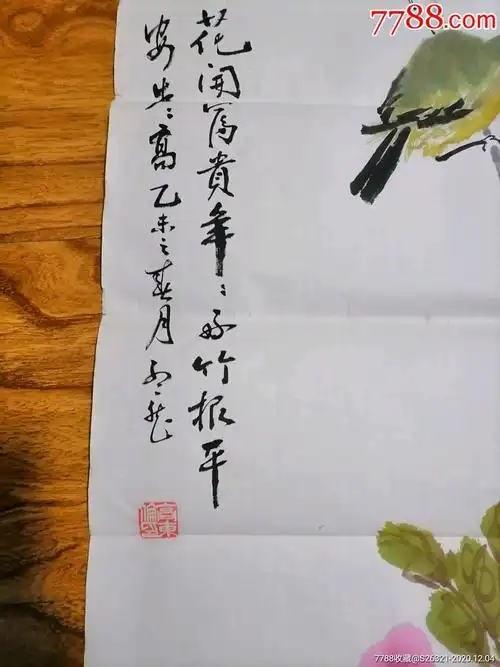 7788.com
花開富貴年〻好竹报平
安步〻高乙未之春月
7788收藏@S26321-2020.12.04